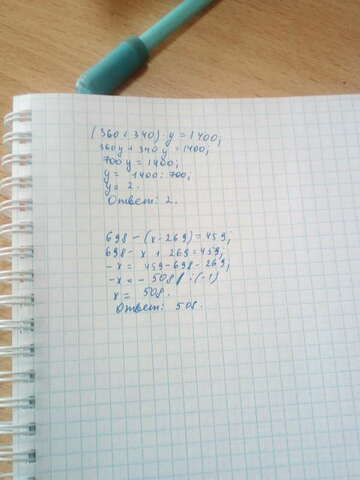 (360+340)·y=1400;
360y+340y=1400;
700y=1400;
y= 1400:700;
y=2.
Ответ: 2.
698-(x-269)=459;
698-x+269=459;
-x= 459-698-269;
-x=-508/:(-1)
x= 508.
Ответ: 508.